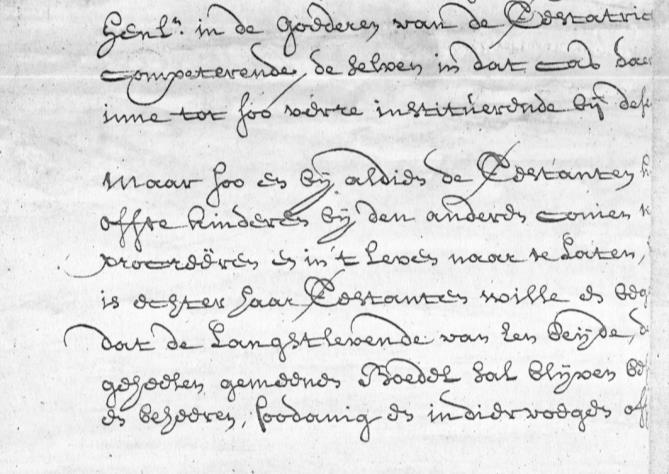 Henl:n in de goederen van de Testatric
Competerende, de selven in dat cas daer
inne tot soo verre institueerende bij dese
Maar soo en bij aldien de Testanten
offte kinderen bij den anderen comen
procreëeren en in 't Leven naar te Laten,
is echter haar Testanten wille en beg
dat de Langhstlevende van hen beijde,
geheelen gemeenen Boedel sal blijven be
en beheeren, soodanig en indiervoegen off